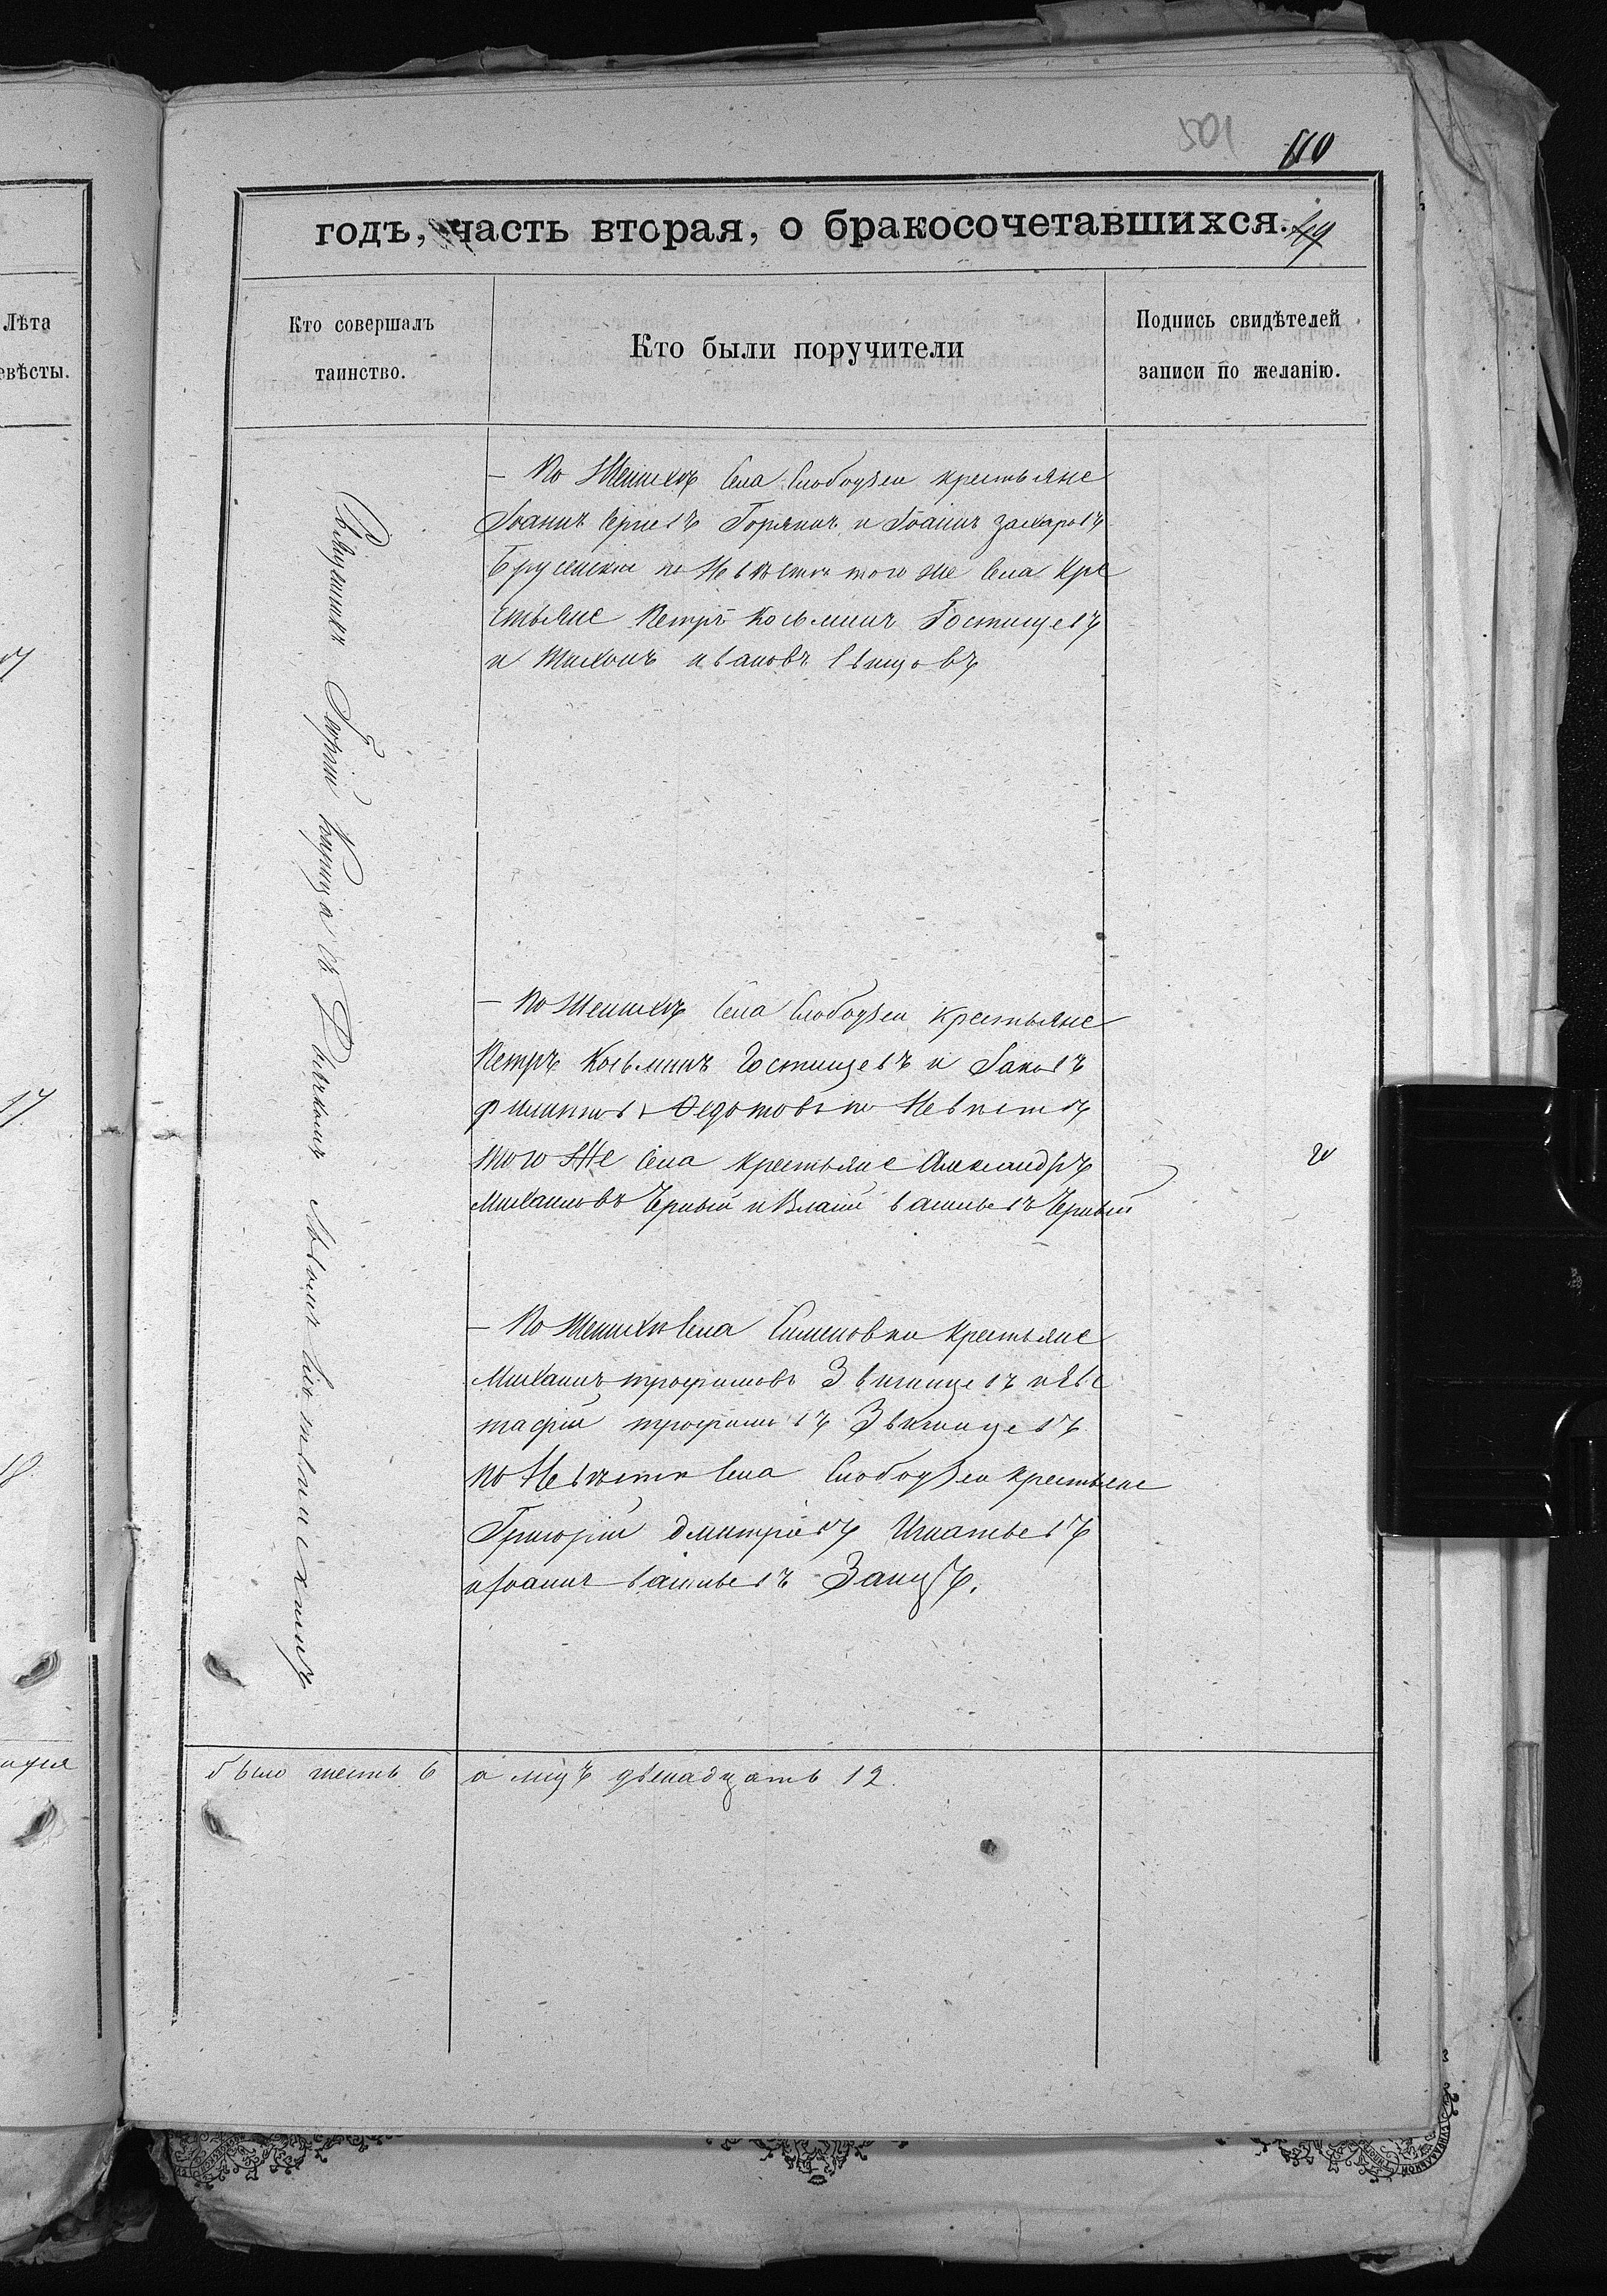 501
110
годъ, часть вторая, о бракосочетавшихся. 49
Лѣта
евѣсты.
Кто совершалъ
таинство.
Кто были поручители
Подпись свидѣтелей
записи по желанію.
17
18
Священникъ Георгій
съ Дьячкомъ
– По Женихѣ Села Слободзеи крестьяне
Іоаннъ Сергіевъ Горянъ и Іоаннъ Захаровъ
по Невѣстѣ того же Села Кре
стьяне Петръ Косьминъ Гостищевъ
и Тихонъ Ивановъ
– По Женихѣ Села Слободзеи крестьяне
Петръ Косьминъ Гостищевъ и Іаковъ
Филиповъ Ѳедотовъ по Невѣстѣ
того Же Села крестьяне Александръ
Михаиловъ Чрный и Влаій Васильевъ Чрный
– По Женихѣ Села Сименовки крестьяне
Михаилъ трофимовъ Звягинцевъ и Евс
тафій трофимовъ Звягинцевъ
по Невѣстѣ Села Слободзеи крестьяне
Григорій Дмитріевъ Игнатьевъ
и Іоаннъ Васильевъ Заицъ.
было шесть 6 а лицъ двенадцать 12.